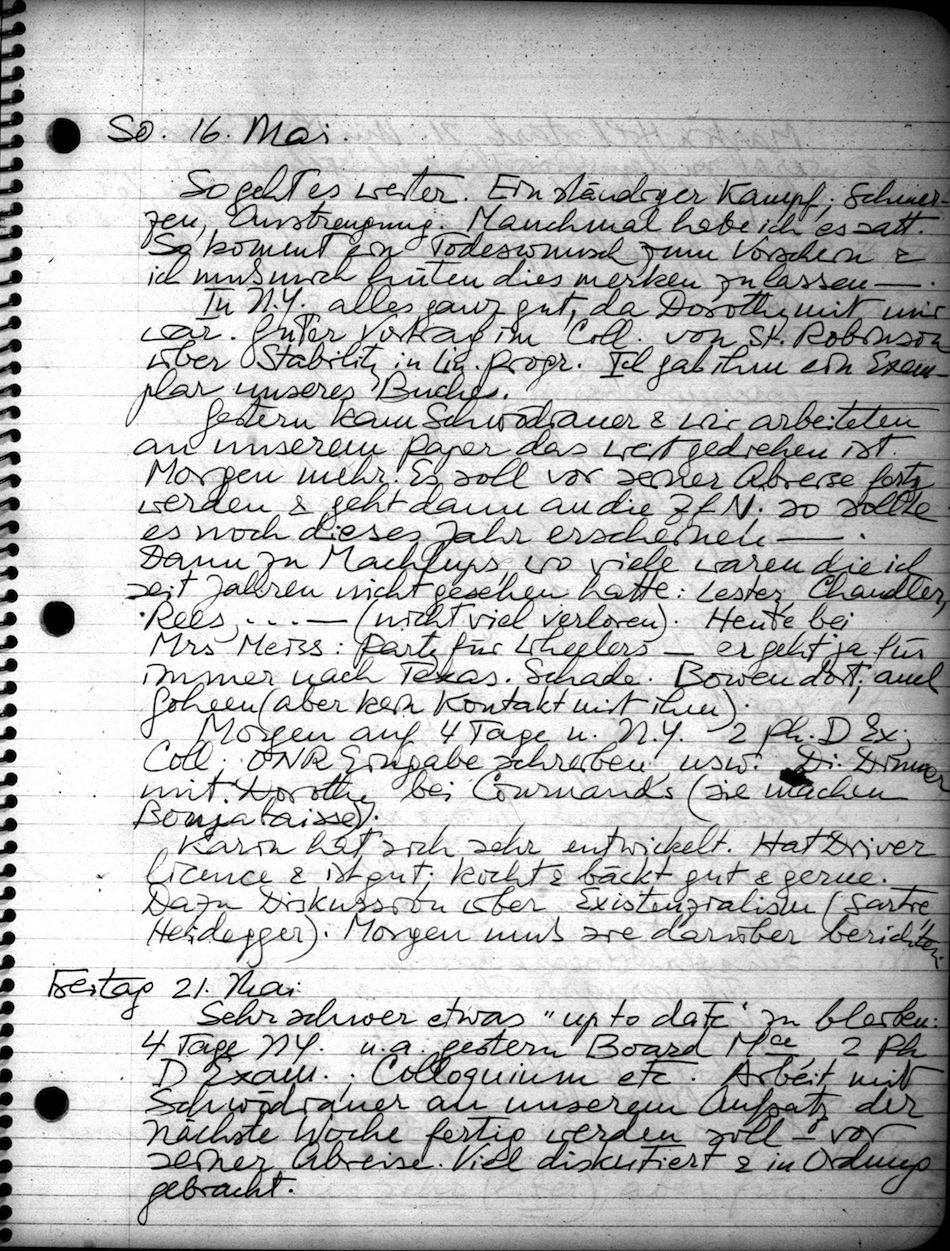 So. 16. Mai.
So geht es weiter. Ein ständiger Kampf; Schmer-
zen, Anstrengung. Manchmal habe ich es satt.
So kommt ein Todeswunsch zum Vorschein &
ich muß mich hüten dies merken zu lassen —.
In N.Y. alles ganz gut, da Dorothy mit mir
war. Guter Vortrag im Coll. von St. Robinson
über Stability in lin. progr. Ich gab ihm ein Exem-
plar unseres Buches.
Gestern kam Schwödiauer & wir arbeiteten
an unserem paper das weit gediehen ist.
Morgen mehr. Es soll vor seiner Abreise fertig
werden & geht dann an die ZfN. so sollte
es noch dieses Jahr erscheinen —.
Dann zu Machlups, wo viele waren die ich
seit Jahren nicht gesehen hatte: Lester, Chandler,
Rees, ... — (nicht viel verloren). Heute bei
Mrs Meiss: Party für Wheelers — er geht ja für
immer nach Texas. Schade. Bowen dort, auch
Goheen (aber kein Kontakt mit ihm).
Morgen auf 4 Tage n. N.Y. 2 Ph. D Ex.,
Coll. ONR Eingabe schreiben, usw. Di. Dinner
mit Dorothy bei Cournands (sie machen
).
Karin hat sich sehr entwickelt. Hat Driver
licence & ist gut; kocht & bäckt gut & gerne.
Dazu Diskussion über Existenzialism (Sartre,
Heidegger). Morgen muß sie darüber berichten.
Freitag 21. Mai
Sehr schwer etwas "up to date" zu bleiben:
4 Tage NY. u.a. gestern Board Mee 2 Ph
D Exam., Colloquium etc. Arbeit mit
Schwödiauer an unserem Aufsatz der
nächste Woche fertig werden soll — vor
seiner Abreise. Viel diskutiert & in Ordnung
gebracht.